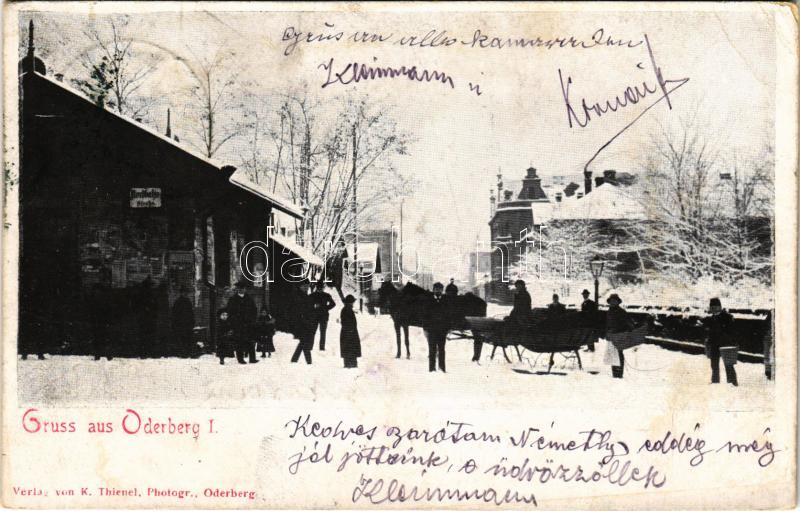 Gruss an alle Kameraden
Kleinmann
Gruss aus Oderberg I.
Kedves barátom Némethy, eddég még
jól jöttünk, s üdvözöllek
Kleinmann
Verlag von K. Thienel, Photogr., Oderberg
darabanth